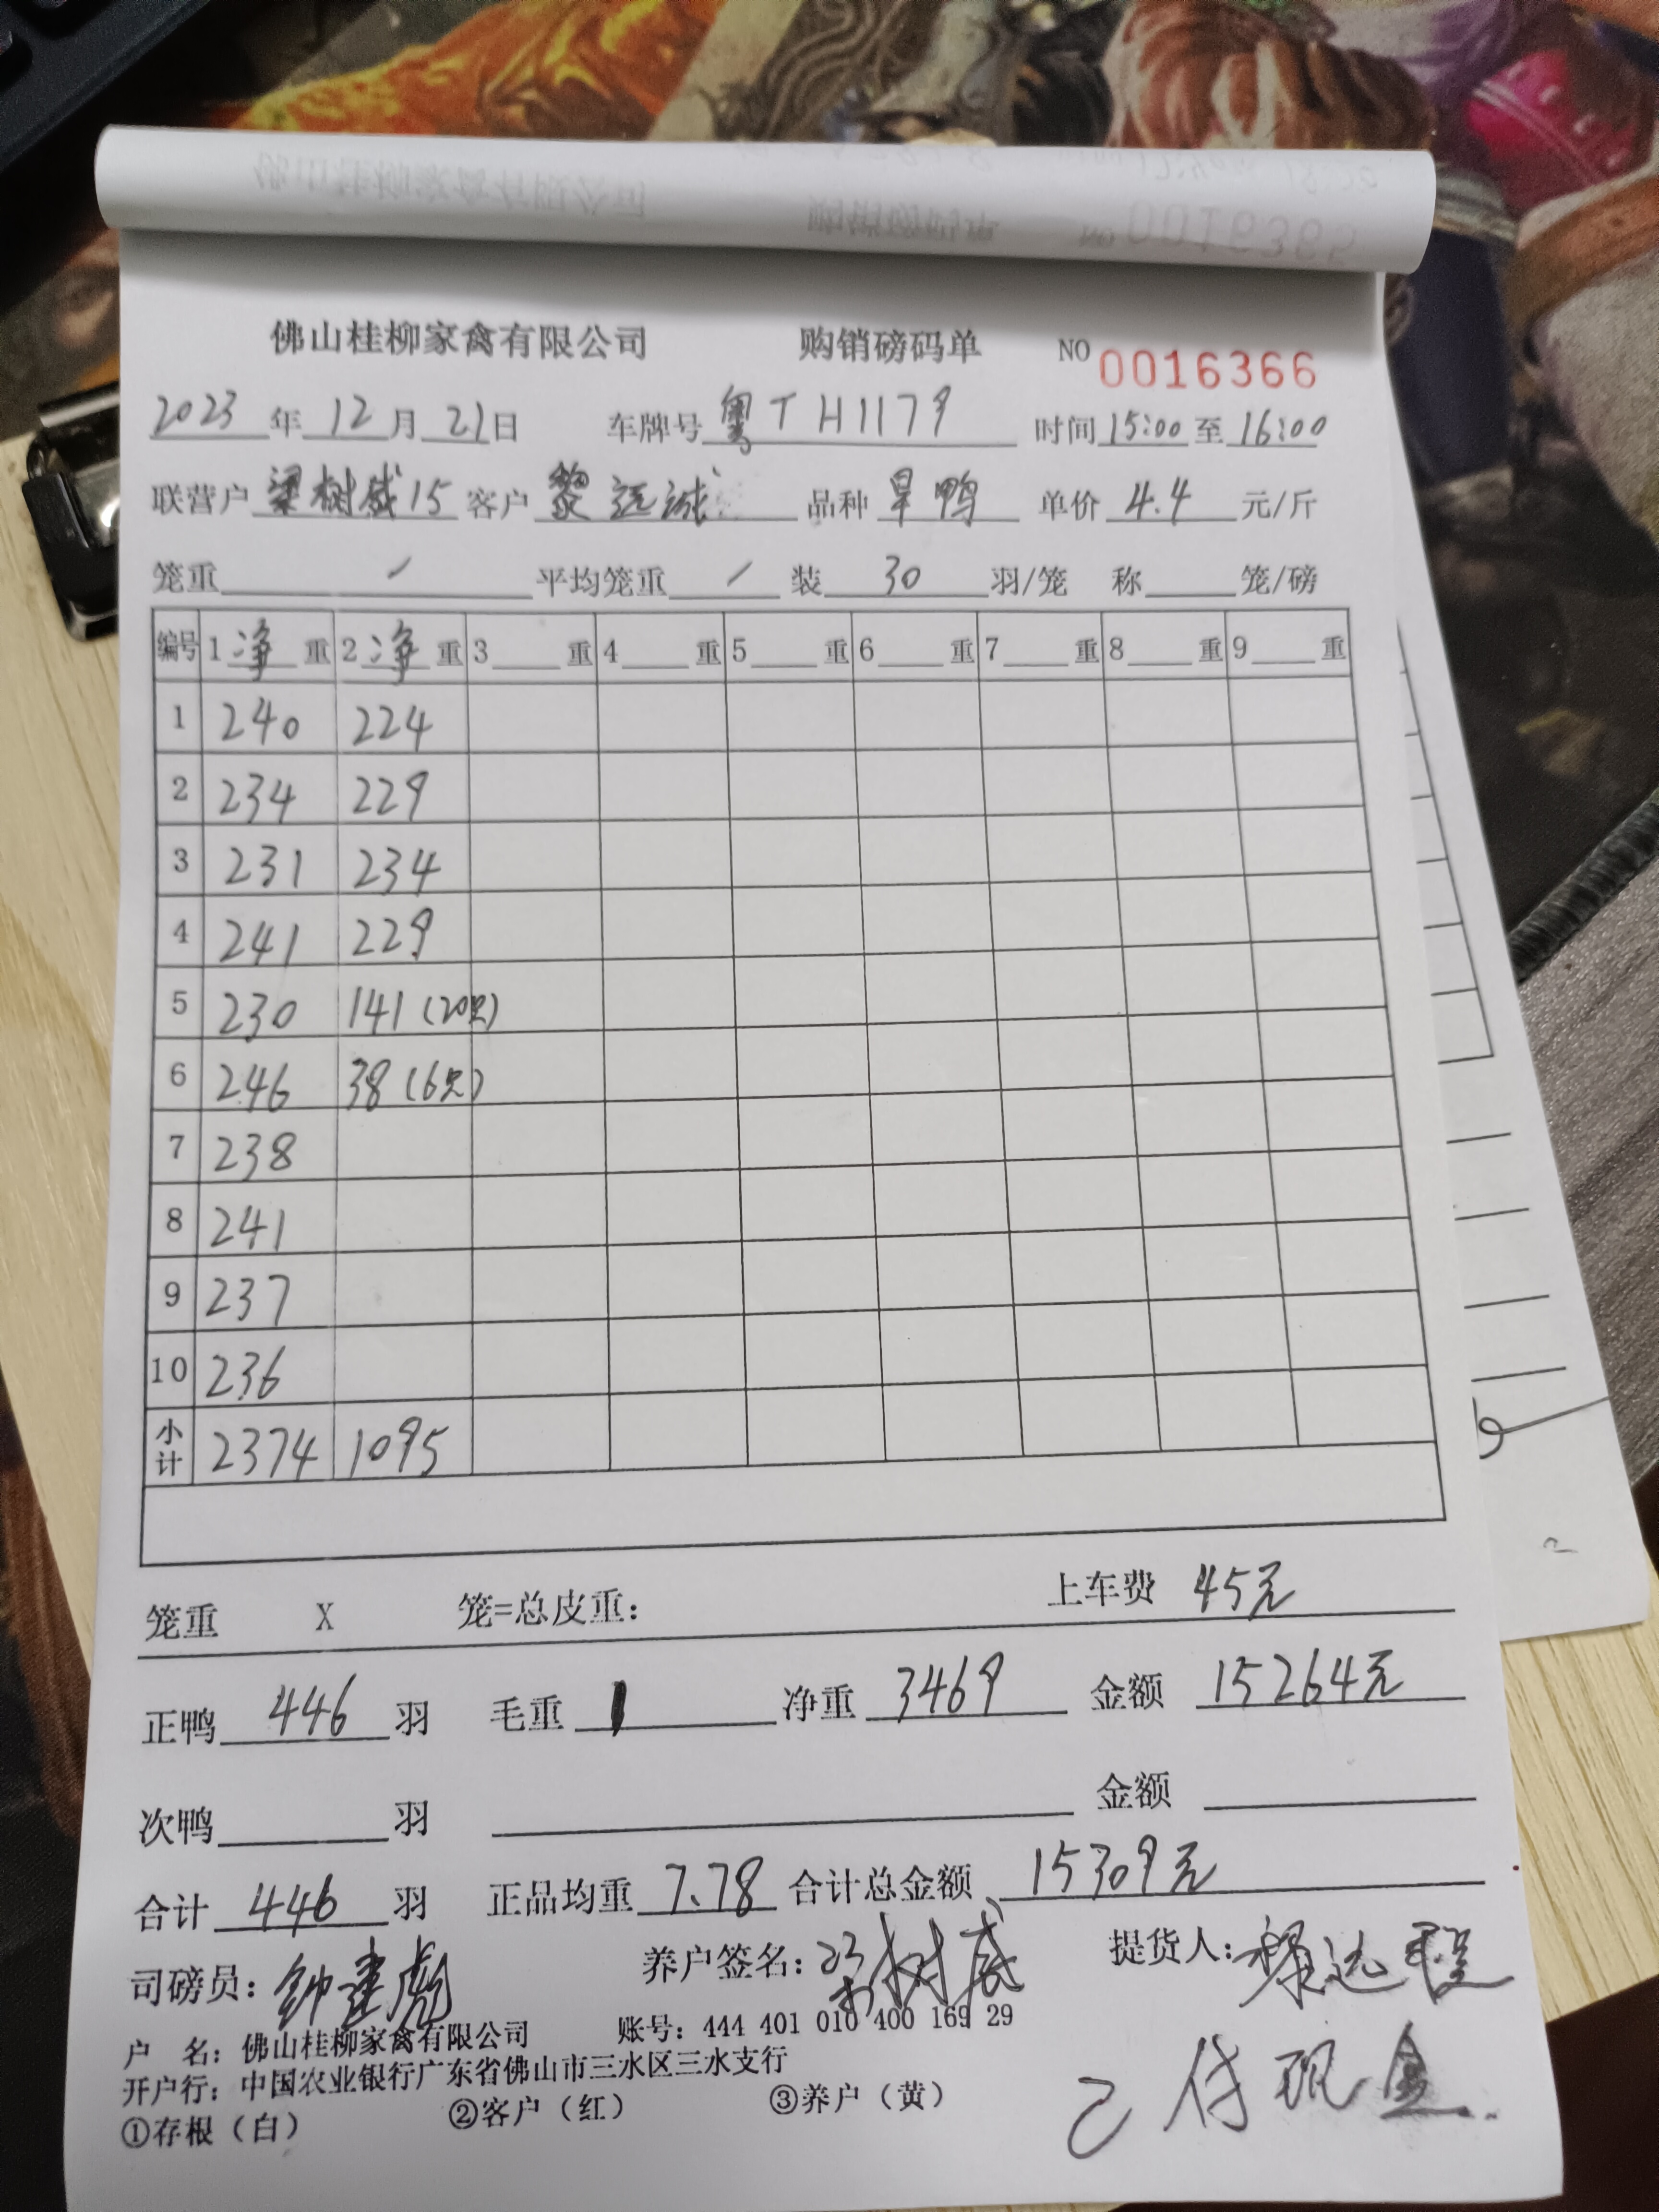 佛山桂柳家禽有限公司 购销磅码单 NO 0016366
2023 年 12 月 21 日 车牌号 粤TH1179 时间 15:00 至 16:00
联营户 梁树威15 客户 黎远诚 品种 旱鸭 单价 4.4 元/斤
笼重 / 平均笼重 / 装 30 羽/笼 称 笼/磅
编号 1 净 重 2 净 重 3 重 4 重 5 重 6 重 7 重 8 重 9 重
1 240 224
2 234 229
3 231 234
4 241 229
5 230 141(20只)
6 246 38(6只)
7 238
8 241
9 237
10 236
小计 2374 1095
笼重 X 笼=总皮重: 上车费 45元
正鸭 446 羽 毛重 净重 3469 金额 15264元
次鸭 羽 金额
合计 446 羽 正品均重 7.78 合计总金额 15309元
司磅员: 钟建彪 养户签名: 树威 提货人:
户 名: 佛山桂柳家禽有限公司 账号: 444 401 010 400 169 29
开户行: 中国农业银行广东省佛山市三水区三水支行
①存根（白） ②客户（红） ③养户（黄）
已付现金